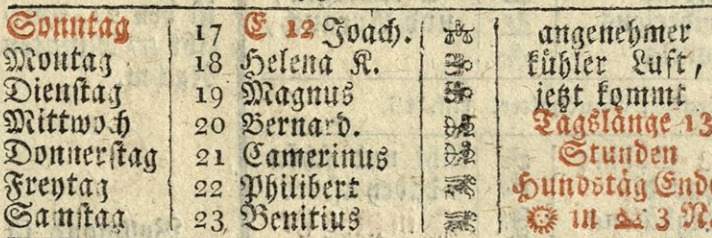 Sonntag 17 E 12 Joach. angenehmer
Montag 18 Helena K. kühler Luft,
Dienstag 19 Magnus jetzt kommt
Mittwoch 20 Bernard. Tagslänge 13
Donnerstag 21 Camerinus Stunden
Freytag 22 Philibert Hundstäg Ende
Samstag 23 Benitius in 3